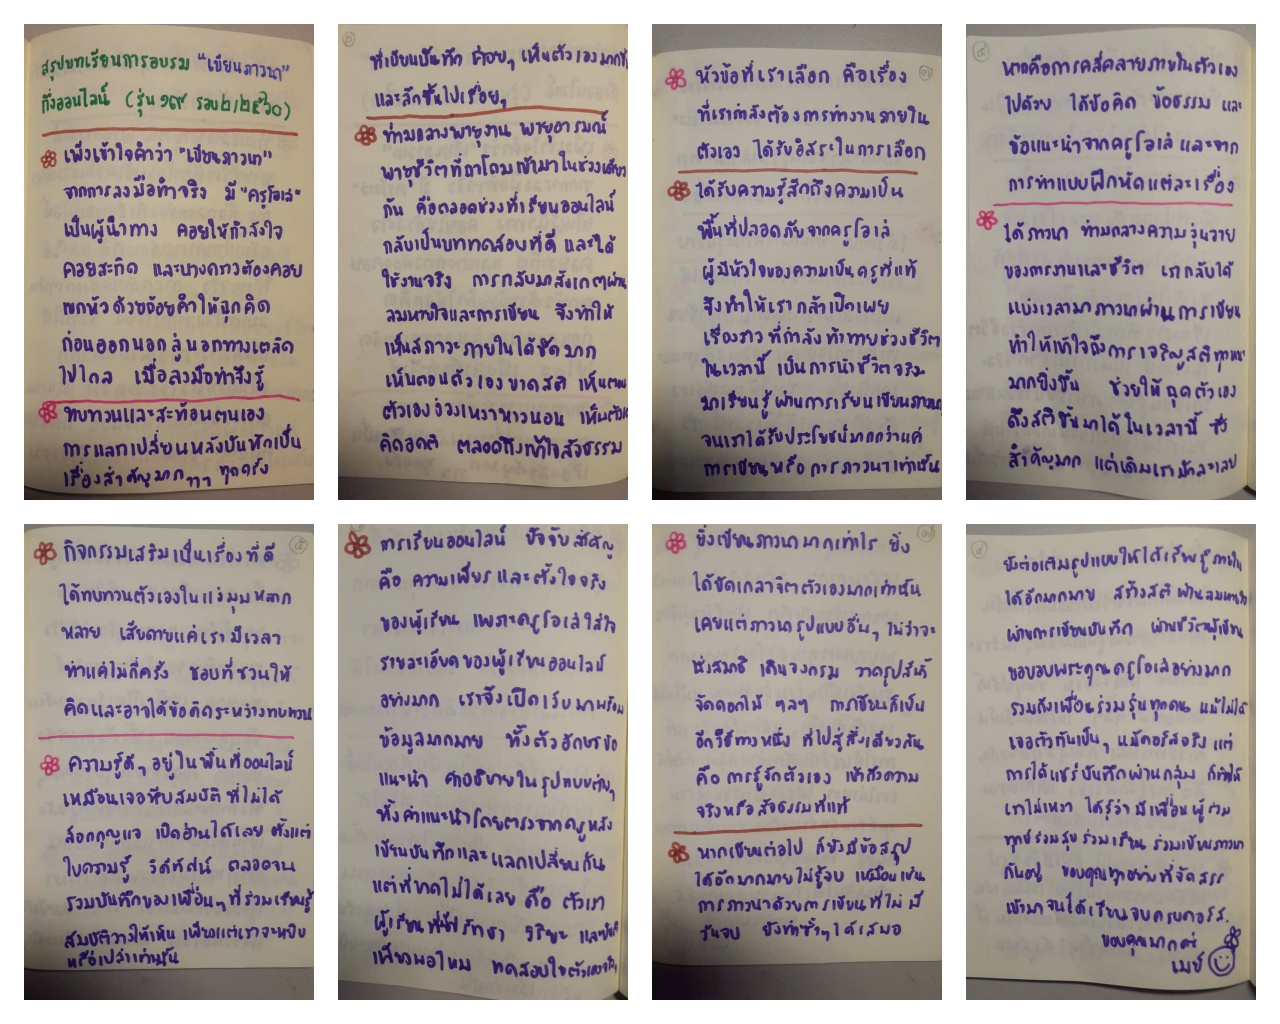 สรุปบทเรียนการอบรม "เขียนภาวนา"
กึ่งออนไลน์ (รุ่น ๑๙ รอบ๒/๒๕๖๐)
เพิ่งเข้าใจคำว่า "เขียนภาวนา"
จากการลงมือทำจริง มี "ครูโอเล่"
เป็นผู้นำทาง คอยให้กำลังใจ
คอยสะกิด และบางคราวต้องคอย
เขกหัวด้วยถ้อยคำให้ฉุกคิด
ก่อนออกนอกลู่นอกทางเตลิด
ไปไกล เมื่อลงมือทำจึงรู้
ทบทวนและสะท้อนตนเอง
การแลกเปลี่ยนหลังบันทึกเป็น
เรื่องสำคัญมากๆๆ ทุกครั้ง
๒
ที่เขียนบันทึก ค่อยๆ เห็นตัวเองมากขึ้น
และลึกขึ้นไปเรื่อยๆ
ท่ามกลางพายุงาน พายุอารมณ์
พายุชีวิตที่ถาโถมเข้ามาในช่วงเดียว
กัน คือตลอดช่วงที่เรียนออนไลน์
กลับเป็นบททดสอบที่ดี และได้
ใช้งานจริง การกลับมาสังเกตผ่าน
ลมหายใจและการเขียน จึงทำให้
เห็นสภาวะภายในได้ชัดมาก
เห็นตอนตัวเองขาดสติ เห็นตอน
ตัวเองง่วงเหงาหาวนอน เห็นตัวเอง
คิดอกติ ตลอดถึงเข้าใจสัจธรรม
๓
หัวข้อที่เราเลือก คือเรื่อง
ที่เรากำลังต้องการทำงานภายใน
ตัวเอง ได้รับอิสระในการเลือก
ได้รับความรู้สึกถึงความเป็น
พื้นที่ปลอดภัยจากครูโอเล่
ผู้มีหัวใจของความเป็นครูที่แท้
จึงทำให้เรากล้าเปิดเผย
เรื่องราวที่กำลังท้าทายช่วงชีวิต
ในเวลานี้ เป็นการนำชีวิตจริง
มาเรียนรู้ผ่านการเรียนเขียนภาวนา
จนเราได้รับประโยชน์มากกว่าแค่
การเขียนหรือการภาวนาเท่านั้น
๔
หากคือการคลี่คลายภายในตัวเอง
ไปด้วย ได้ข้อคิด ข้อธรรม และ
ข้อแนะนำจากครูโอเล่ และจาก
การทำแบบฝึกหัดแต่ละเรื่อง
ได้ภาวนา ท่ามกลางความวุ่นวาย
ของการงานและชีวิต เรากลับได้
แบ่งเวลามาภาวนาผ่านการเขียน
ทำให้เข้าใจถึงการเจริญสติทุกขณะ
มากยิ่งขึ้น ช่วยให้ฉุดตัวเอง
ดึงสติขึ้นมาได้ในเวลานี้ ซึ่ง
สำคัญมาก แต่เดิมเรามักละเลย
๕
กิจกรรมเสริมเป็นเรื่องที่ดี
ได้ทบทวนตัวเองในแง่มุมหลาก
หลาย เสียดายแค่เรามีเวลา
ทำแค่ไม่กี่ครั้ง ชอบที่ชวนให้
คิดและอาจได้ข้อคิดระหว่างทบทวน
ความรู้ดีๆ อยู่ในพื้นที่ออนไลน์
เหมือนเจอหีบสมบัติที่ไม่ได้
ล็อกกุญแจ เปิดอ่านได้เลย ตั้งแต่
ใบความรู้ วิดีทัศน์ ตลอดจน
รวมบันทึกของเพื่อนๆ ที่ร่วมเรียนรู้
สมบัติวางให้เห็น เพียงแต่เราจะหยิบ
หรือเปล่าเท่านั้น
การเรียนออนไลน์ ปัจจัยสำคัญ
คือ ความเพียร และตั้งใจจริง
ของผู้เรียน เพราะครูโอเล่ใส่ใจ
รายละเอียดของผู้เรียนออนไลน์
อย่างมาก เราจึงเปิดเว็บมาพร้อม
ข้อมูลมากมาย ทั้งตัวอักษร ข้อ
แนะนำ คำอธิบายในรูปแบบต่างๆ
ทั้งคำแนะนำโดยตรงจากครูหลัง
เขียนบันทึกและแลกเปลี่ยนกัน
แต่ที่ขาดไม่ได้เลย คือ ตัวเรา
ผู้เรียนที่มีศรัทธา วิริยะ และขันติ
เพียงพอไหม ทดสอบใจตัวเองจริงๆ
๗
ยิ่งเขียนภาวนามากเท่าไร ยิ่ง
ได้ขัดเกลาจิตตัวเองมากเท่านั้น
เคยแต่ภาวนารูปแบบอื่นๆ ไม่ว่าจะ
นั่งสมาธิ เดินจงกรม วาดรูปสีน้ำ
จัดดอกไม้ ฯลฯ การเขียนก็เป็น
อีกวิธีทางหนึ่ง ที่ไปสู่สิ่งเดียวกัน
คือ การรู้จักตัวเอง เข้าถึงความ
จริงหรือสัจธรรมที่แท้
หากเขียนต่อไป ก็ยังมีข้อสรุป
ได้อีกมากมายไม่รู้จบ เหมือนเช่น
การภาวนาด้วยการเขียนที่ไม่มี
วันจบ ยังทำซ้ำๆ ได้เสมอ
๘
ยังต่อเติมรูปแบบให้ได้เรียนรู้ภายใน
ได้อีกมากมาย สร้างสติผ่านลมหายใจ
ผ่านการเขียนบันทึก ผ่านชีวิตผู้เขียน
ขอบขอบพระคุณครูโอเล่อย่างมาก
รวมถึงเพื่อนร่วมรุ่นทุกคน แม้ไม่ได้
เจอตัวกันเป็นๆ แม้คอร์สจริง แต่
การได้แชร์บันทึกผ่านกลุ่ม ก็ทำให้
เราไม่เหงา ได้รู้ว่ามีเพื่อนผู้ร่วม
ทุกข์ร่วมสุข ร่วมเรียน ร่วมเขียนภาวนา
กันอยู่ ขอบคุณทุกอย่างที่จัดสรร
เข้ามาจนได้เรียนจบครบคอร์ส.
ขอบคุณมากค่ะ
เมย์